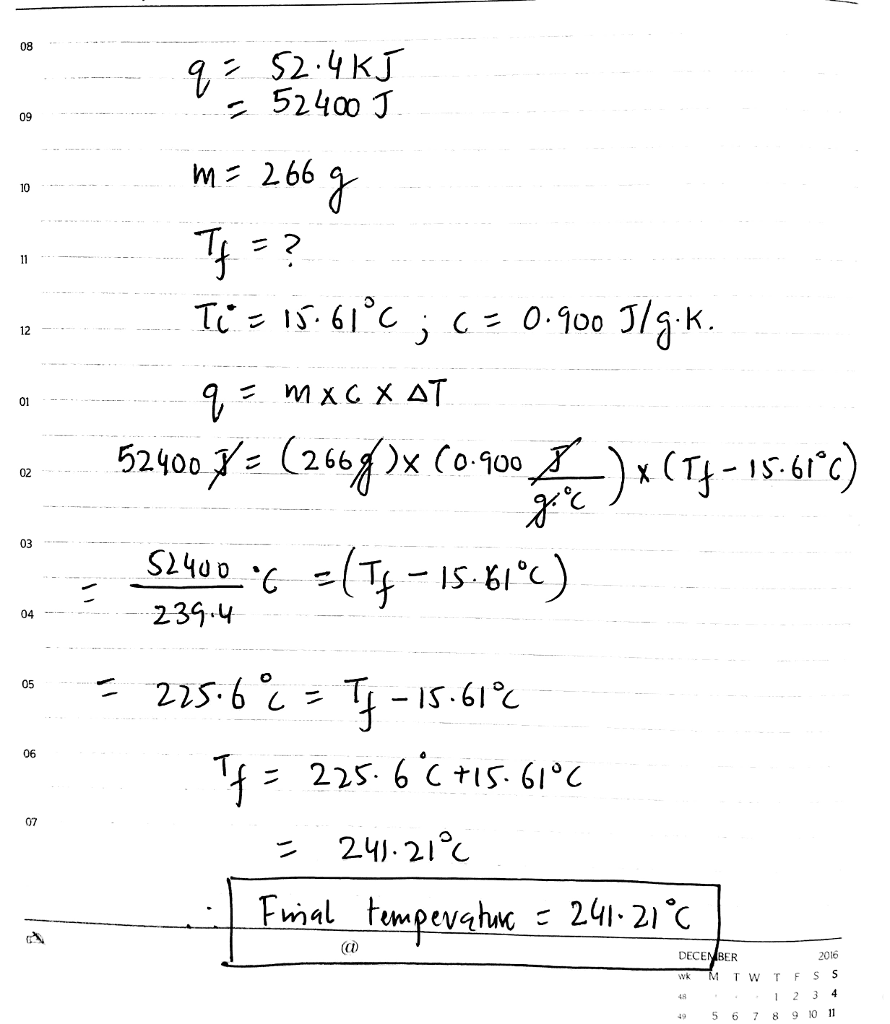 08
q = 52.4 KJ
= 52400 J
09
m = 266 g
10
Tf = ?
11
Ti = 15.61°C ; c = 0.900 J/g.K.
12
q = m x c x ΔT
01
52400 J = (266g) x (0.900 J/g.°C) x (Tf - 15.61°C)
02
03
= 52400/239.4 °C = (Tf - 15.61°C)
04
05
= 225.6°C = Tf - 15.61°C
06
Tf = 225.6°C + 15.61°C
07
= 241.21°C
∴ Final temperature = 241.21°C
@
DECEMBER 2016
wk M T W T F S S
48 · · · 1 2 3 4
49 5 6 7 8 9 10 11